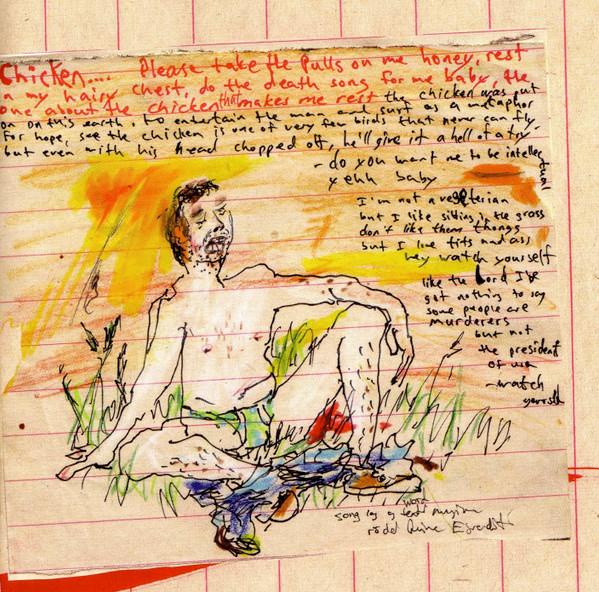 Chicken.... Please take the pulls on me honey, rest
on my hairy chest, do the death song for me baby, the
one about the chicken that makes me rest the chicken was put
on on this earth. to entertain the man and surf as a metaphor
for hope, see the chicken is one of very few birds that never can fly
but even with his head chopped off, he'll give it a hell of a try-
- do you want me to be intellectual
yehh baby
I'm not a vegeterian
but I like sitting in the grass
don't like them thongs
but I love tits and ass
hey watch yourself
like the Lord I've
got nothing to say
some people are
murderers
but not
the president
of usa
- watch
yourself
song by
word